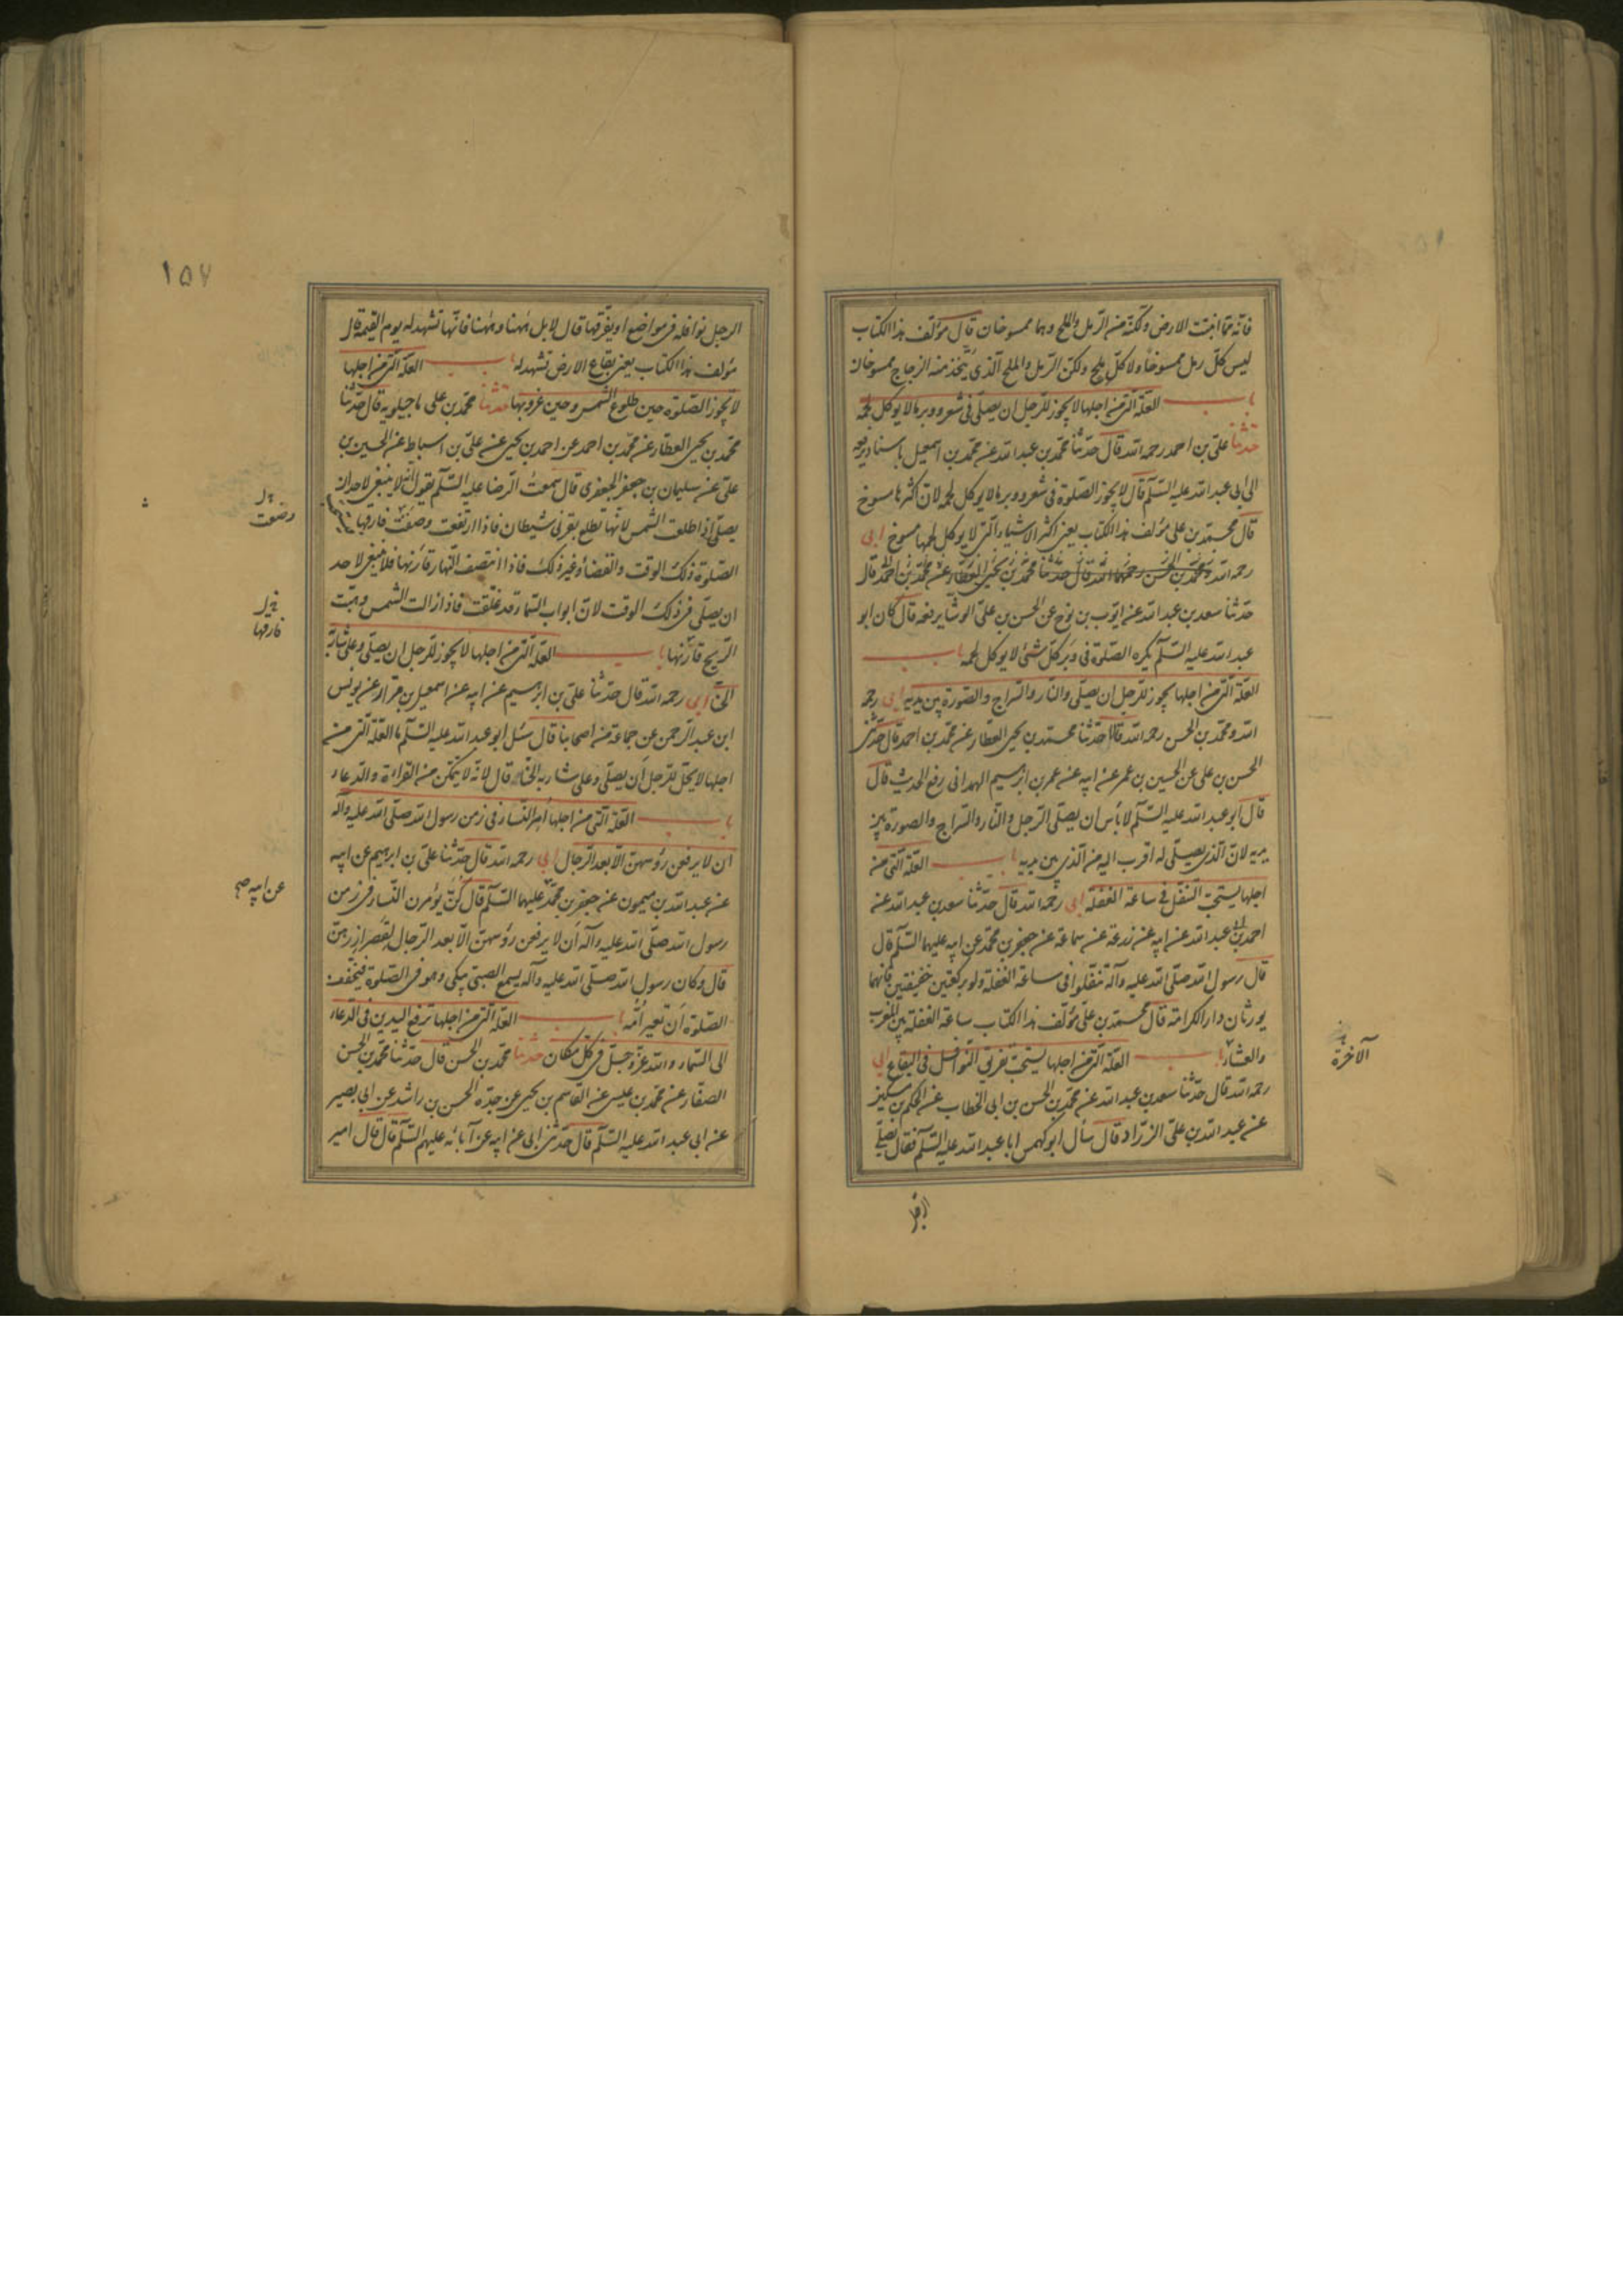 فانّه ممّا انبتت الارض ولكنّه من الرّمل والملح وهما ممسوخان قال مؤلّف هذا الكتاب
ليس كلّ رمل ممسوخا ولا كلّ ملح ولكن الرّمل والملح الّذى يتّخذ منه الزجاج ممسوخان
باب العلّة التى من اجلها لا يجوز للرّجل ان يصلّى فى شعر ووبر ما لا يؤكل لحمه
حدثنا علىّ بن احمد رحمه الله قال حدّثنا محمّد بن عبد الله عن محمّد بن اسمعيل باسناد يرفعه
الى ابى عبد الله عليه السّلم قال لا يجوز الصّلوة فى شعر ووبر ما لا يؤكل لحمه لانّ اكثرها مسوخ
قال محمّد بن على مؤلف هذا الكتاب يعنى اكثر الاشياء الّتى لا يوكل لحمها مسوخ ابى
رحمه الله ومحمّد بن الحسن رحمهما الله قال حدّثنا محمّد بن يحيى العطّار عن محمّد بن احمد قال
حدّثنا سعد بن عبد الله عن ايّوب بن نوح عن الحسن بن علىّ الوشا يرفعه قال كان ابو
عبد الله عليه السّلم يكره الصّلوة فى وبر كلّ شئ لا يوكل لحمه باب
العلّة الّتى من اجلها يجوز للرّجل ان يصلّى والنّار والسّراج والصّورة بين يديه ابى رحمه
الله ومحمّد بن الحسن رحمه الله قالا حدّثنا محمّد بن يحيى العطّار عن محمّد بن احمد قال حدّثنى
الحسن بن على عن الحسين بن عمر عن ابيه عن عمر بن ابرهيم الهمدانى رفع الحديث قال
قال ابو عبد الله عليه السّلم لا بأس ان يصلّى الرّجل والنّار والسّراج والصورة بين
يديه لانّ الّذى يصلّى له اقرب اليه من الّذى بين يديه باب العلّة الّتى من
اجلها يستحبّ التنفّل فى ساعة الغفلة ابى رحمه الله قال حدّثنا سعد بن عبد الله عن
احمد بن ابى عبد الله عن ابيه عن زرعة عن سماعة عن جعفر بن محمّد عن ابيه عليهما السّلم قال
قال رسول الله صلّى الله عليه وآله تنفّلوا فى ساعة الغفلة ولو بركعتين خفيفتين فانّهما
يورثان دار الكرامة قال محمّد بن علىّ مؤلّف هذا الكتاب ساعة الغفلة بين المغرب
والعشاء باب العلّة الّتى من اجلها يستحبّ تفريق النّوافل فى البقاع ابى
رحمه الله قال حدّثنا سعد بن عبد الله عن محمّد بن الحسن بن ابى الخطاب عن الحكم بن مسكين
عن عبد الله بن علىّ الزرّاد قال سأل ابو كهمس ابا عبد الله عليه السّلم فقال يصلّى
الآخرة
الرجل
١٥٧
الرجل نوافله فى مواضع او يفرّقها قال لا بل ههنا وههنا فانّها تشهد له يوم القيمة قال
مؤلف هذا الكتاب يعنى بقاع الارض تشهد له باب العلّة الّتى من اجلها
لا تجوز الصّلوة حين طلوع الشّمس وحين غروبها حدثنا محمّد بن على ماجيلويه قال حدّثنا
محمّد بن يحيى العطار عن محمّد بن احمد عن احمد بن يحيى عن علىّ بن اسباط عن الحسين بن
علىّ عن سليمان بن جعفر الجعفرى قال سمعت الرّضا عليه السّلم يقول انّه لا ينبغى لاحد ان
يصلّى اذا طلعت الشّمس لانّها تطلع بقرنى شيطان فاذا ارتفعت وصفت فارقها
الصّلوة ذلك الوقت والقضاء وغير ذلك فاذا انتصف النّهار قارنها فلا ينبغى لاحد
ان يصلّى فى ذلك الوقت لانّ ابواب السّماء قد غلّقت فاذا زالت الشّمس وهبّت
الرّيح فارقها باب العلّة الّتى من اجلها لا يجوز للرّجل ان يصلّى وعلى شاربه
الحنّا ابى رحمه الله قال حدّثنا علىّ بن ابرهيم عن ابيه عن اسمعيل بن مرار عن يونس
ابن عبد الرّحمن عن جماعة من اصحابنا قال سئل ابو عبد الله عليه السّلم ما العلّة الّتى من
اجلها لا يحلّ للرّجل أن يصلّى وعلى شاربه الحنّاء قال لانّه لا يتمكّن من القراءة والدّعاء
باب العلّة الّتى من اجلها أمر النّساء فى زمن رسول الله صلّى الله عليه وآله
ان لا يرفعن رؤسهنّ الّا بعد الرّجال ابى رحمه الله قال حدّثنا علىّ بن ابرهيم عن ابيه
عن عبد الله بن ميمون عن جعفر بن محمّد عليهما السّلم قال كنّ يؤمرن النّساء فى زمن
رسول الله صلّى الله عليه وآله أن لا يرفعن رؤسهنّ الّا بعد الرّجال لقصر ازرهنّ
قال وكان رسول الله صلّى الله عليه وآله يسمع الصبىّ يبكى وهو فى الصّلوة فيخفّف
الصّلوة أن تعبر امّه باب العلّة الّتى من اجلها ترفع اليدين فى الدّعاء
الى السّماء والله عزّ وجلّ فى كلّ مكان حدثنا محمّد بن الحسن قال حدّثنا محمّد بن الحسن
الصفّار عن محمّد بن عيسى عن القاسم بن يحيى عن جدّه الحسن بن راشد عن ابى بصير
عن ابى عبد الله عليه السّلم قال حدّثنى ابى عن ابيه عن آبائه عليهم السّلم قال قال امير
وضعت
فارقها
عن ابيه صح